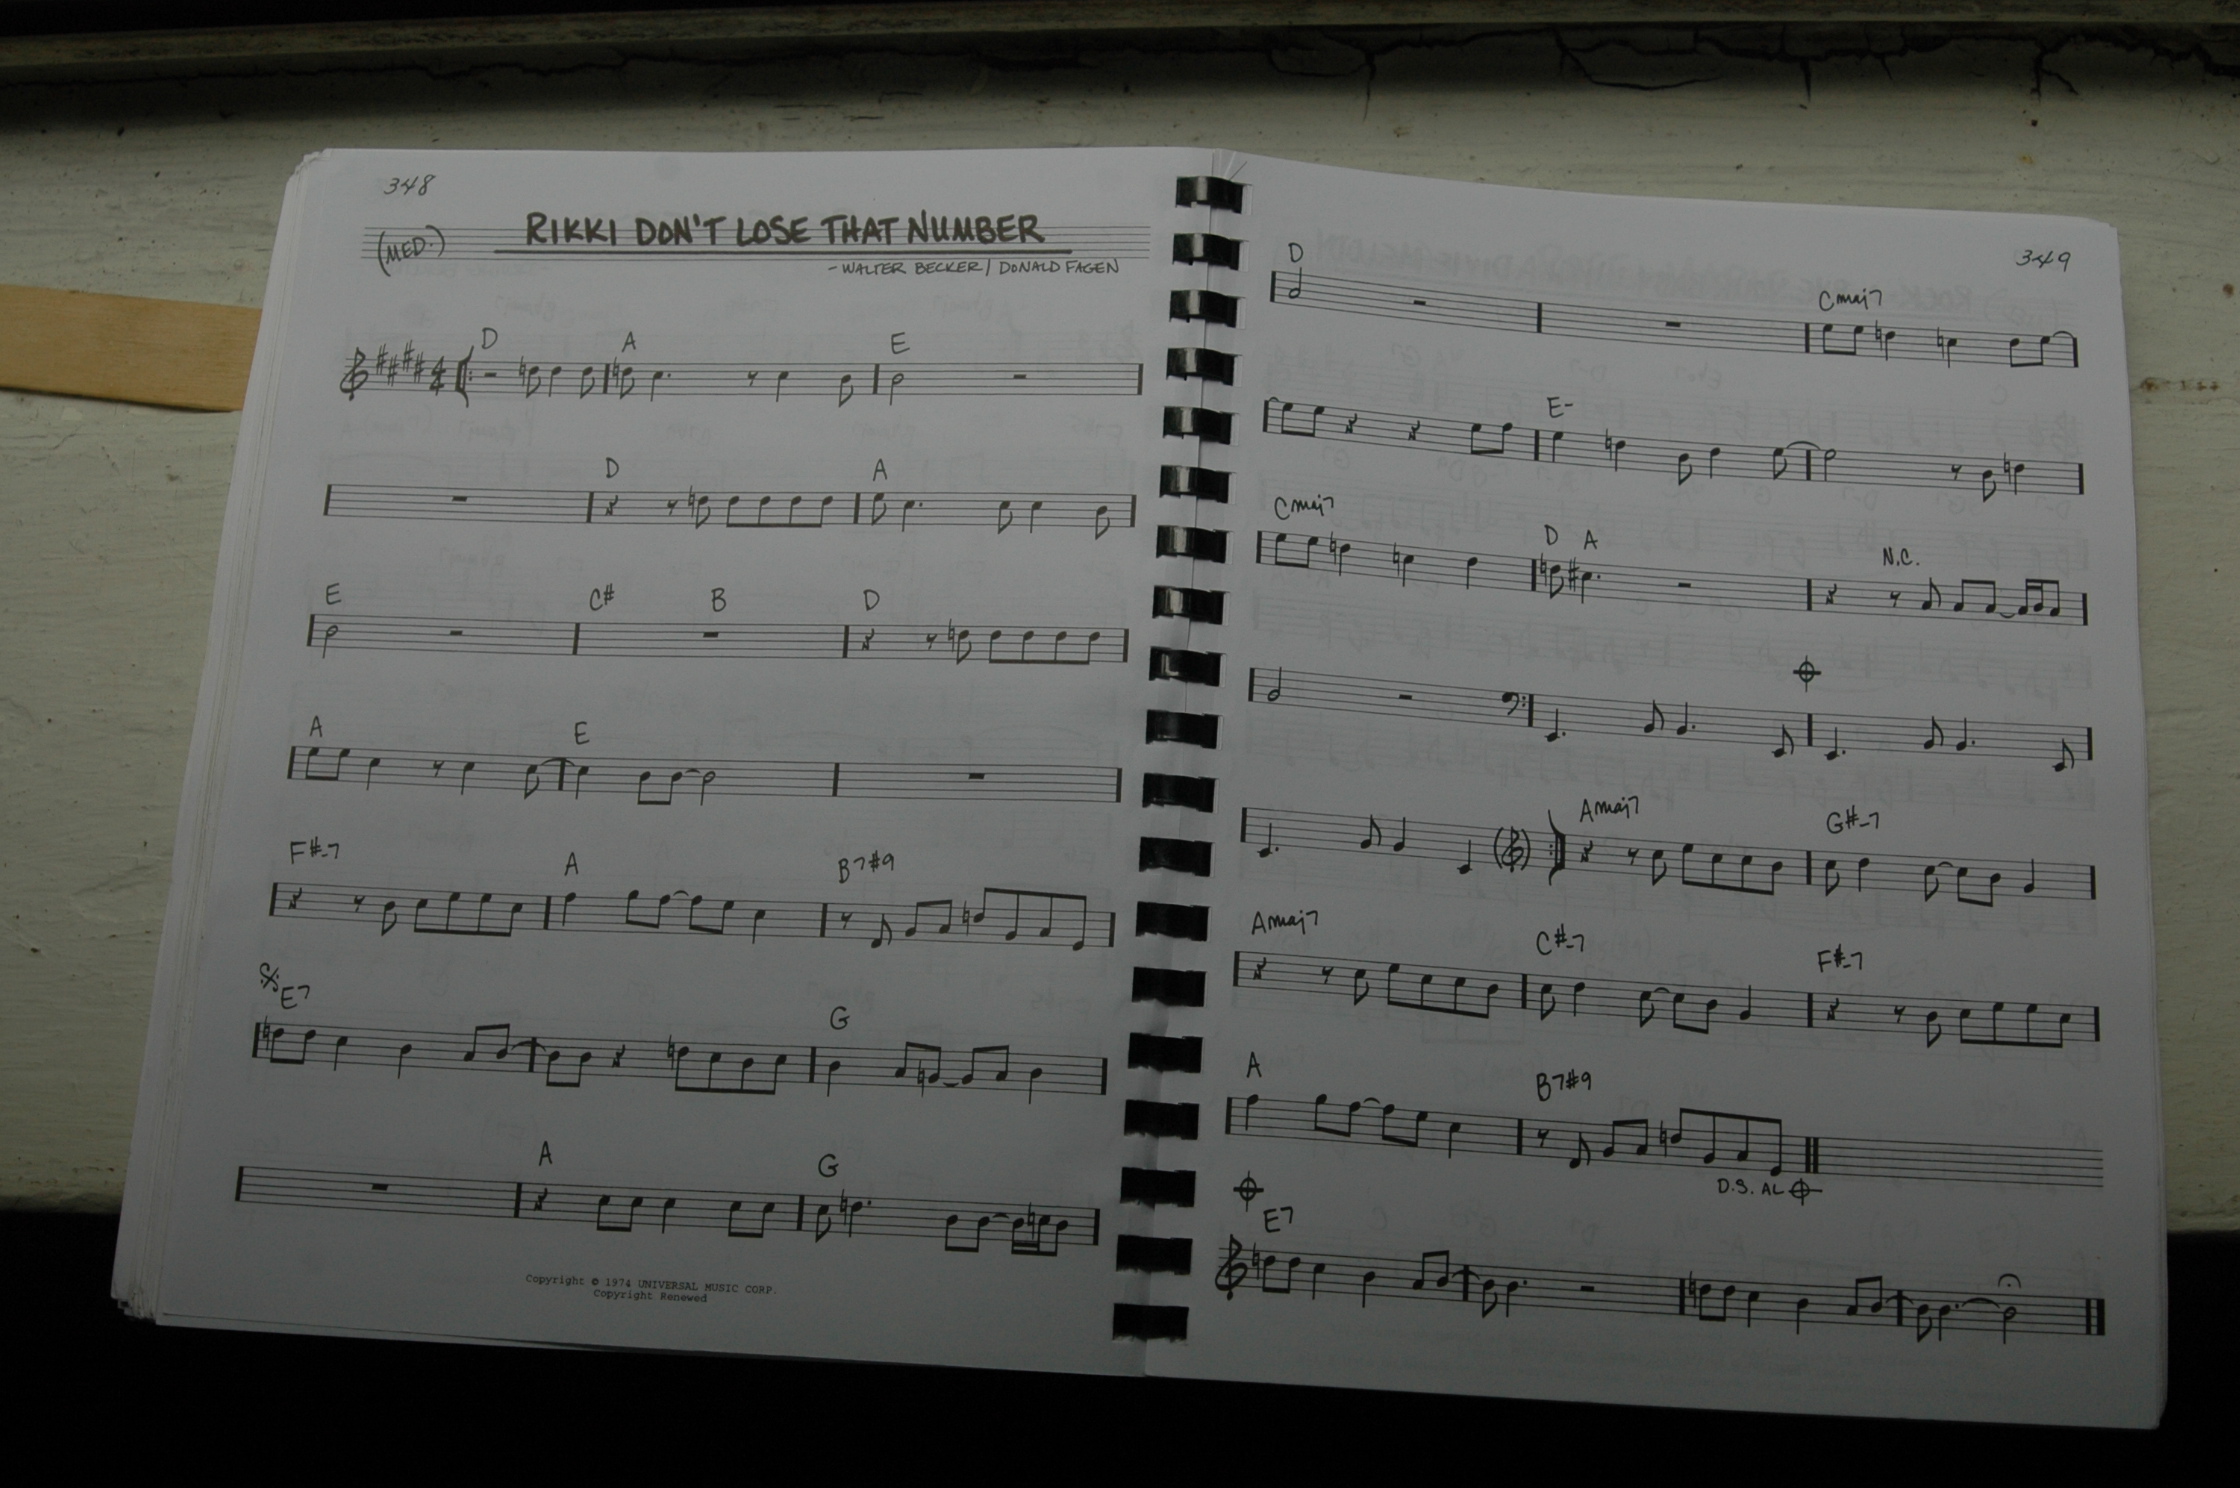 348
(MED.)
RIKKI DON'T LOSE THAT NUMBER
- WALTER BECKER / DONALD FAGEN
D A E
D A
E C# B D
A E
F#-7 A B7#9
E7 G
A G
Copyright © 1974 UNIVERSAL MUSIC CORP.
Copyright Renewed
349
D Cmaj7
E-
Cmaj7 D A N.C.
Amaj7 G#-7
Amaj7 C#-7 F#-7
A B7#9
D.S. AL
E7